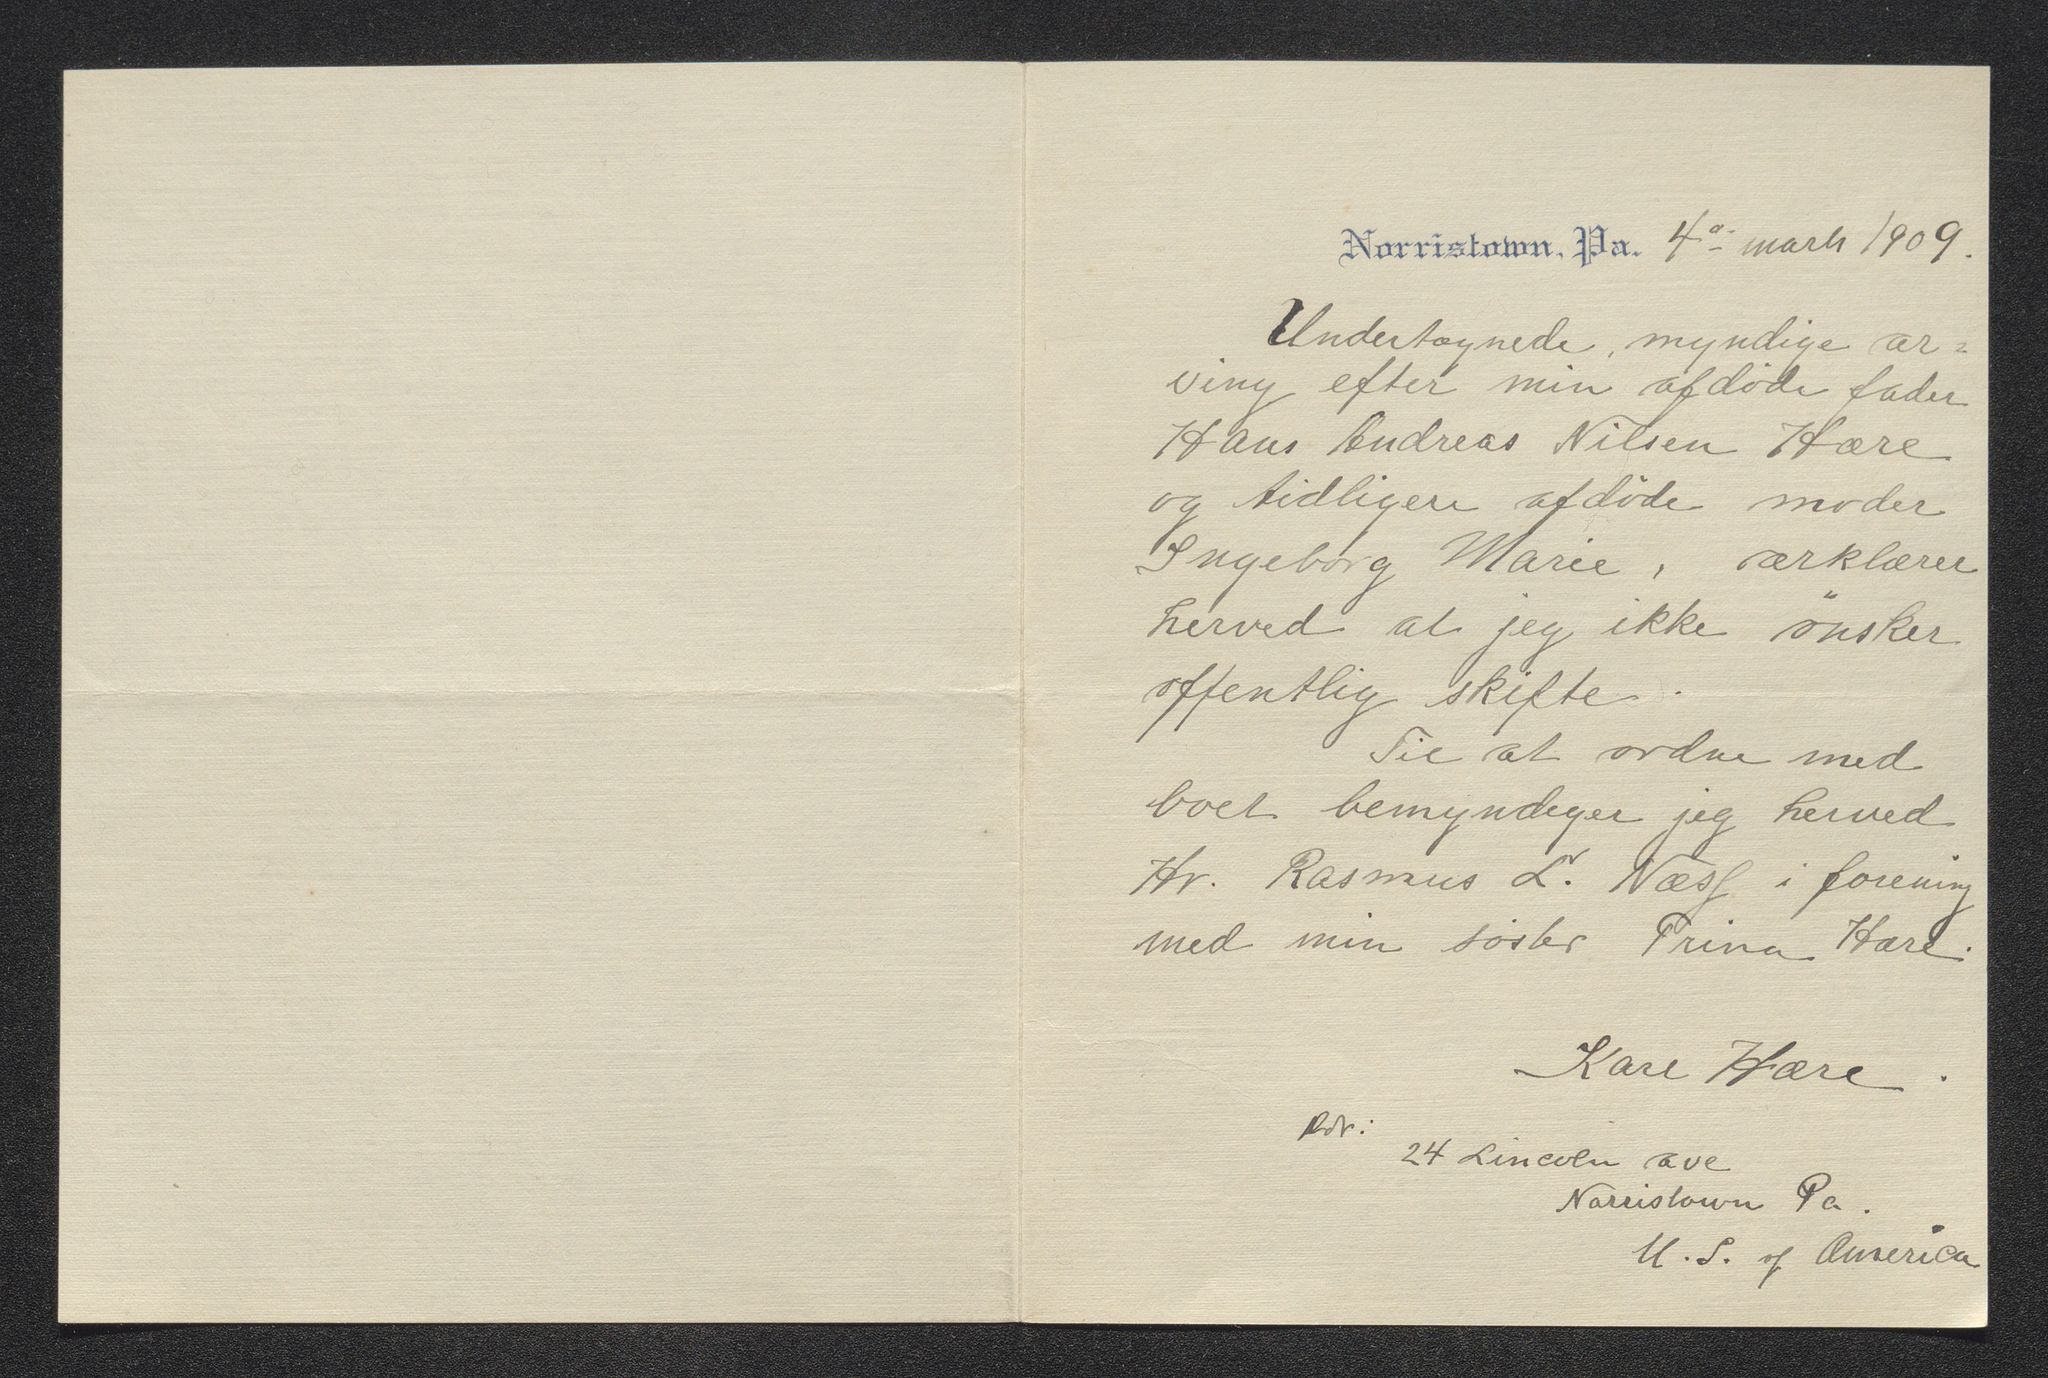 Norristown, Pa. 4de march 1909.
Undertegnede, myndige ar=
ving efter min afdöde fader
Hans Andreas Nilsen Hære
og tidligere afdöde moder
Ingeborg Marie, ærklærer
herved at jeg ikke önsker
offentlig skifte.
Til at ordne med
boet bemyndiger jeg herved
Hr. Rasmus L. Næss i forening
med min söster Trina Hære.
Kare Hære.
Adr:
24 Lincoln ave
Norristown Pa.
U. S. of America